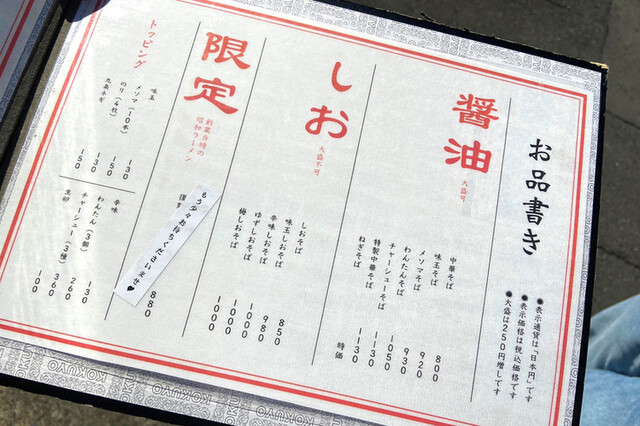 お品書き
●表示通貨は「日本円」です
●表示価格は税込価格です
●大盛は250円増しです
醤油
大盛可
中華そば 800
味玉そば 920
メンマそば 930
わんたんそば 1050
チャーシューそば 1130
特製中華そば 1130
ねぎそば 時価
しお
大盛不可
しおそば 850
味玉しおそば 980
辛味しおそば 1000
ゆずしおそば 1000
梅しおそば 1000
限定
創業当時の
昭和ラーメン
880
もう少々お待ちくださいませ♥
トッピング
味玉 130
メンマ（10本） 150
のり（4枚） 130
九条ネギ 150
辛味 130
わんたん（3個） 260
チャーシュー（3種） 360
生卵 100
KOKUYO